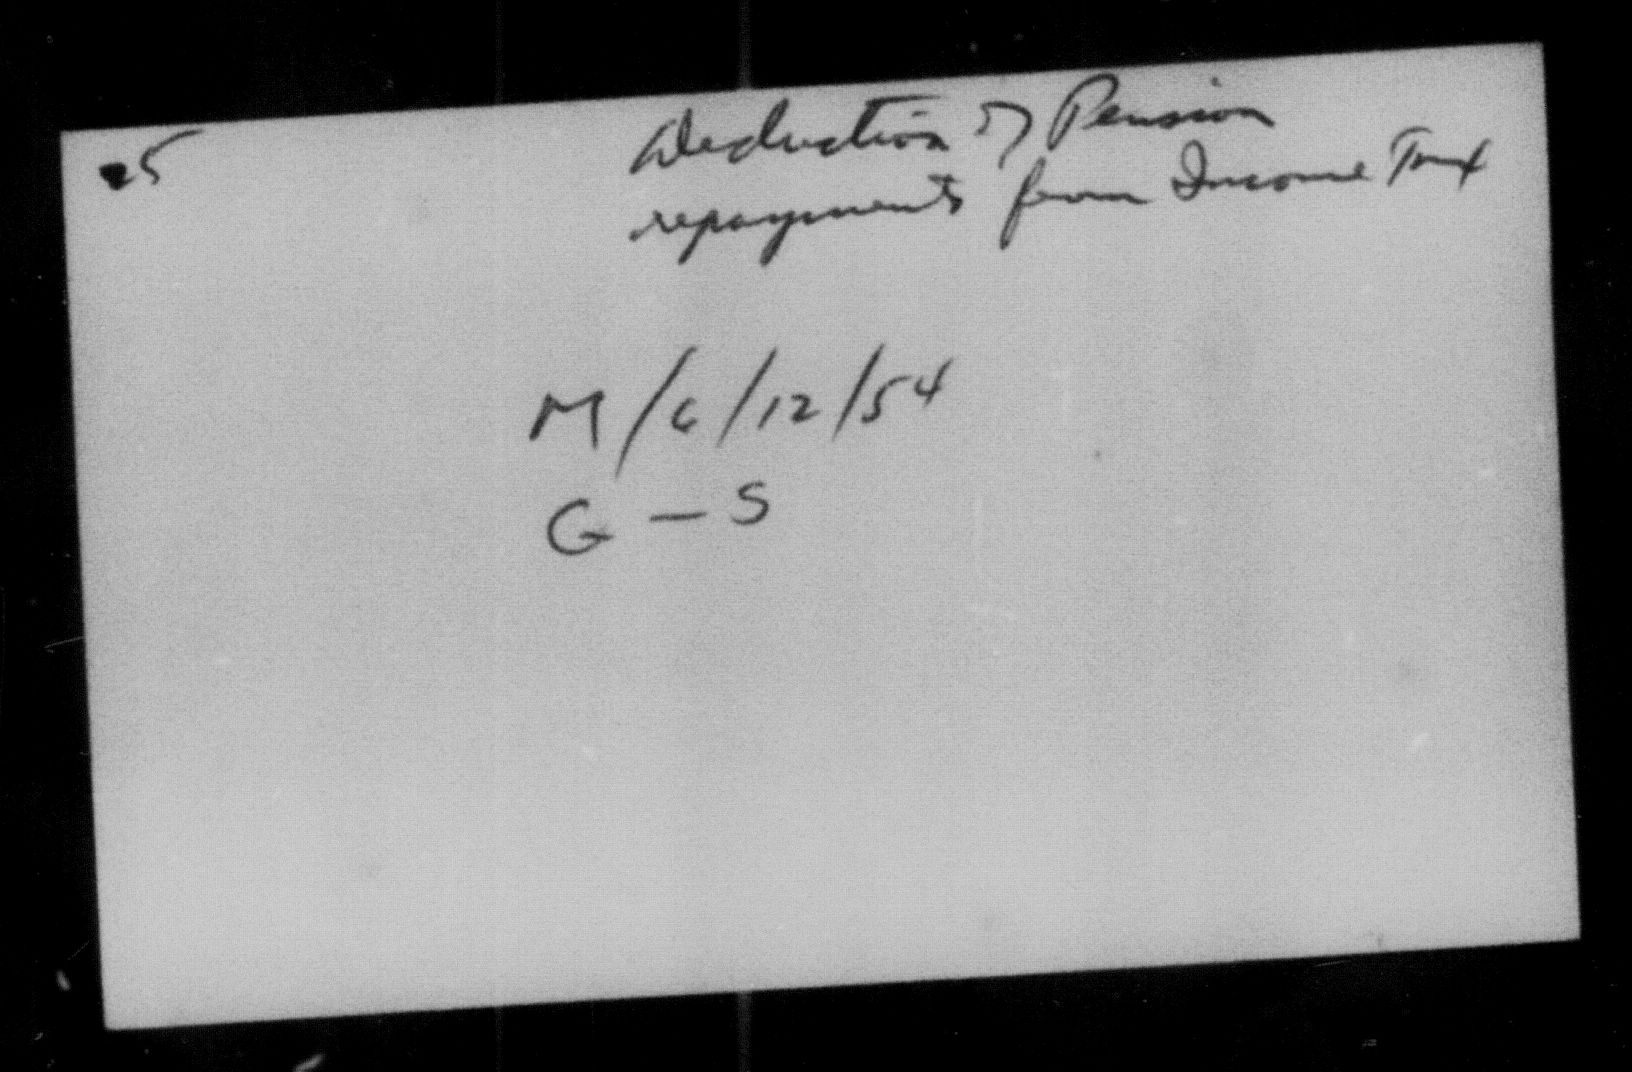 25
Deduction of Pension
repayments from Income Tax
M/6/12/54
G – S